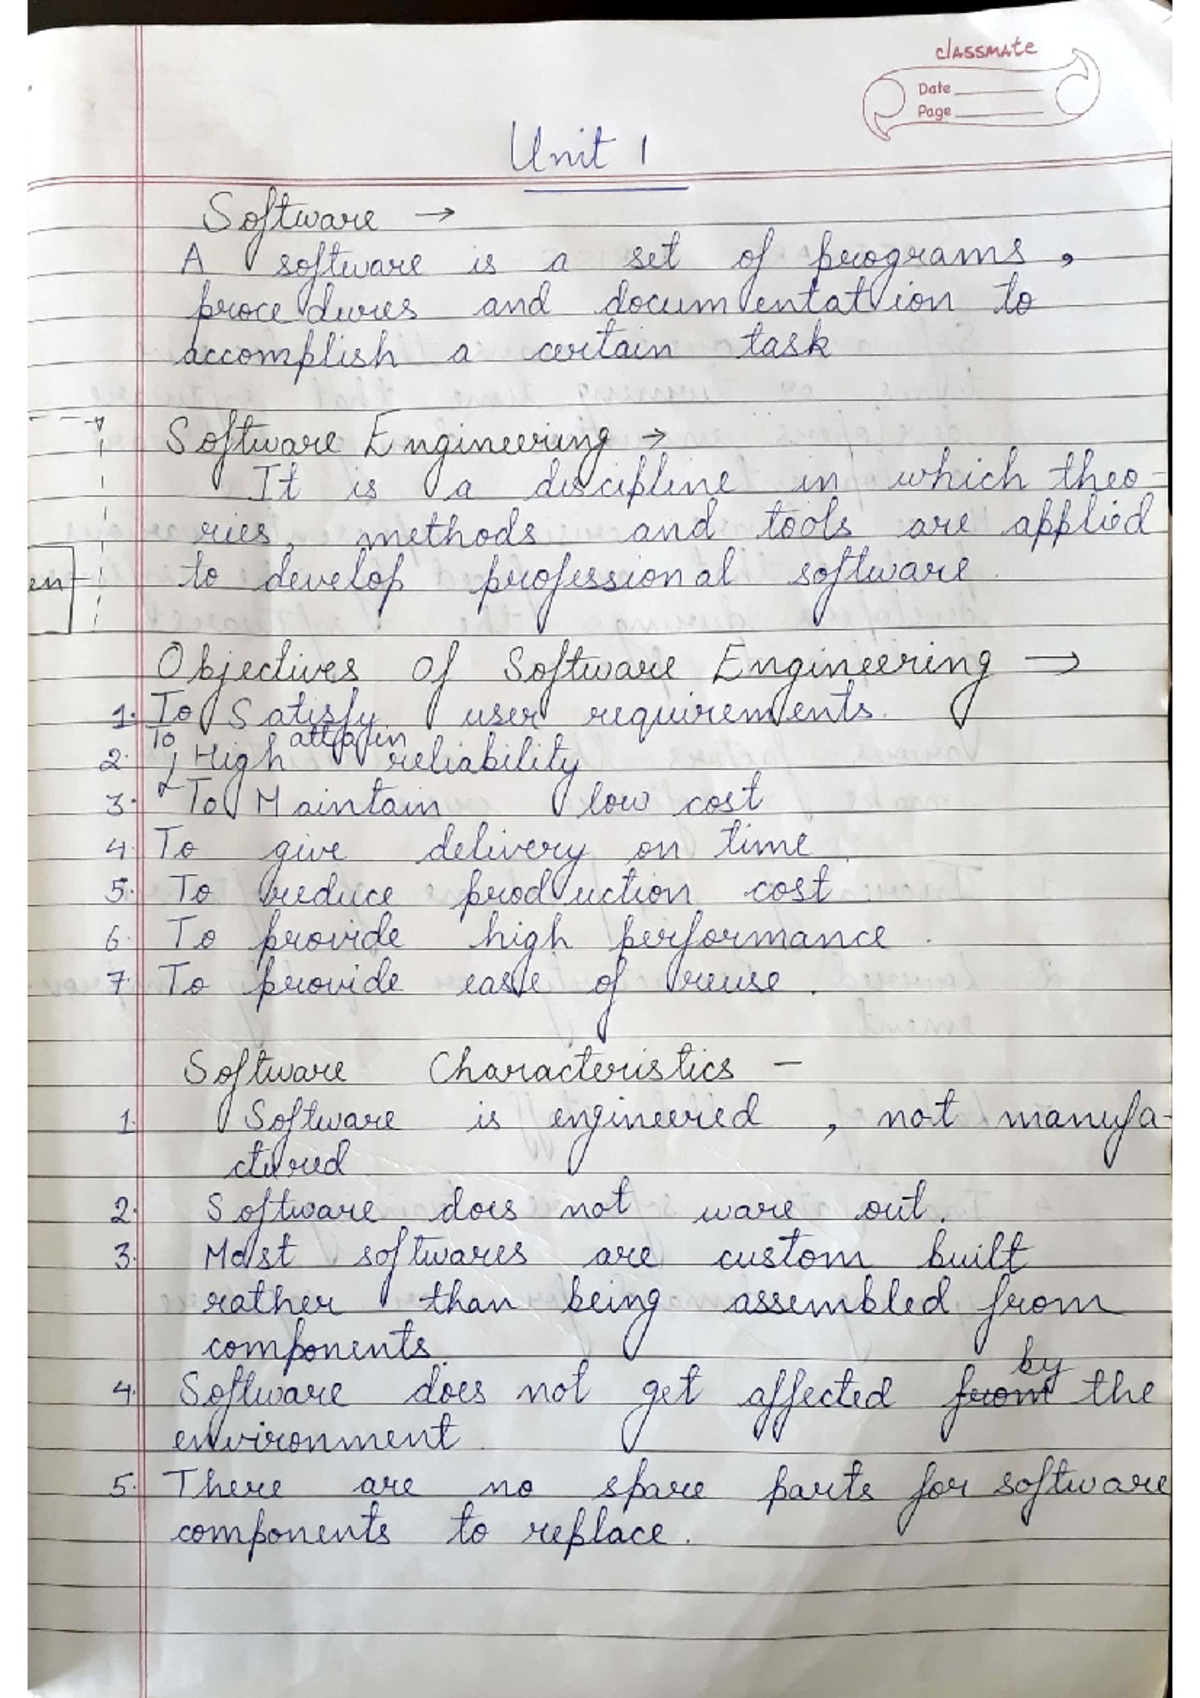 classmate
Date
Page
Unit 1
Software →
A software is a set of programs,
procedures and documentation to
accomplish a certain task
Software Engineering →
It is a discipline in which theo-
ries, methods and tools are applied
en
to develop professional software.
Objectives Of Software Engineering →
1. To Satisfy user requirements.
2. To attain High reliability
3. To Maintain low cost
4. To give delivery on time.
5. To reduce production cost
6. To provide high performance.
7. To provide ease of reuse.
Software Characteristics -
1. Software is engineered, not manufa-
ctured
2. Software does not ware out.
3. Most softwares are custom built
rather than being assembled from
components.
4. Software does not get affected from by the
environment.
5. There are no spare parts for software
components to replace.